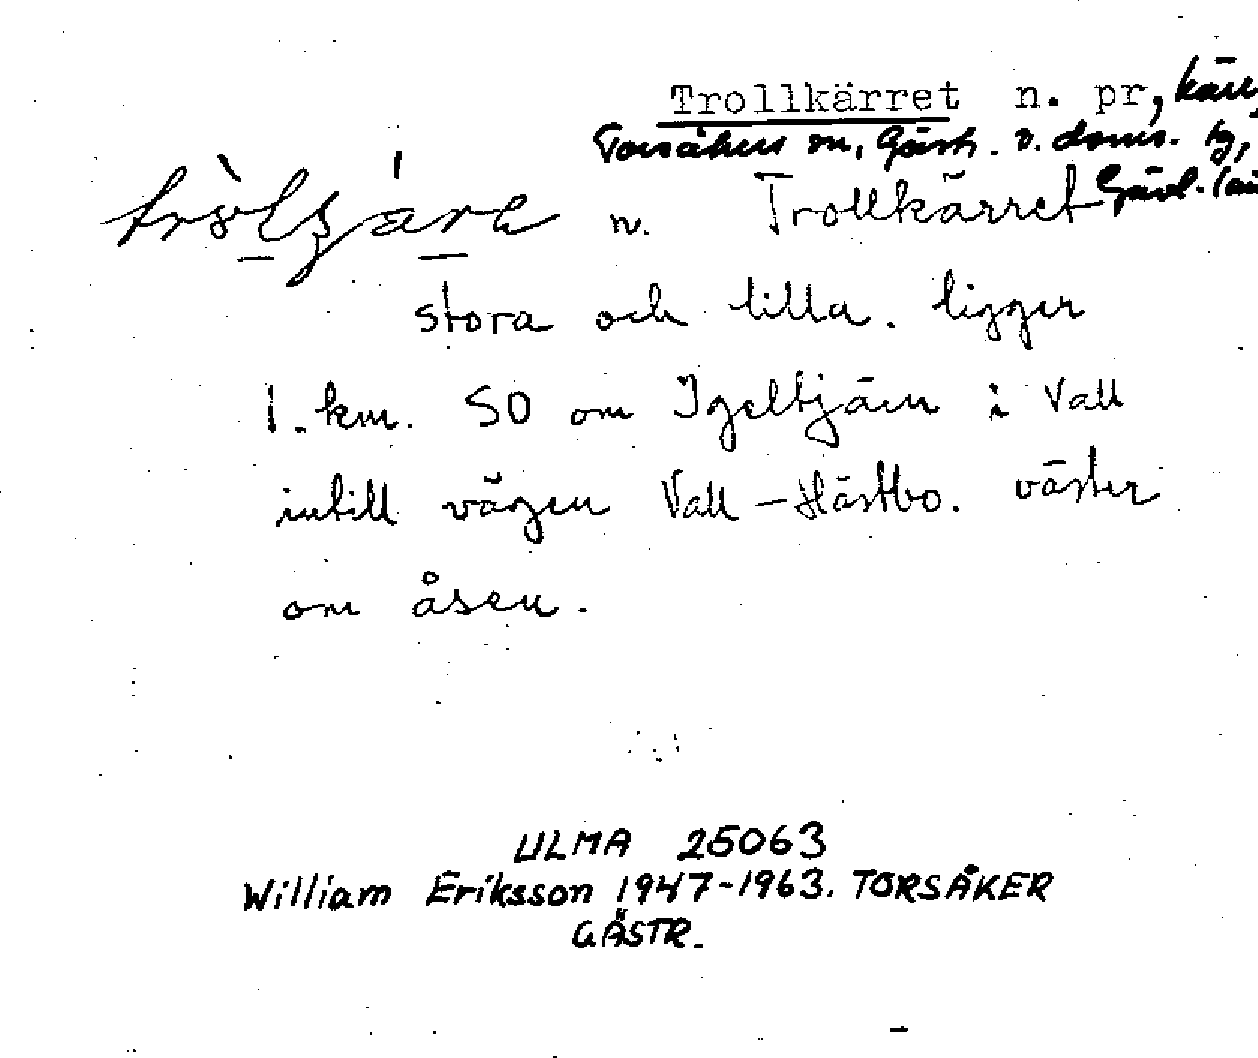 Trollkärret n. pr, kärr,
Torsåkers sn, Gästr. v. doms. tg,
n. Trollkärret Gävl. län
stora och lilla. ligger
1. km. SO om Igeltjärn i Vall
intill vägen Vall - Hästbo. väster
om åsen.
ULMA 25063
William Eriksson 1947-1963. TORSÅKER
GÄSTR.